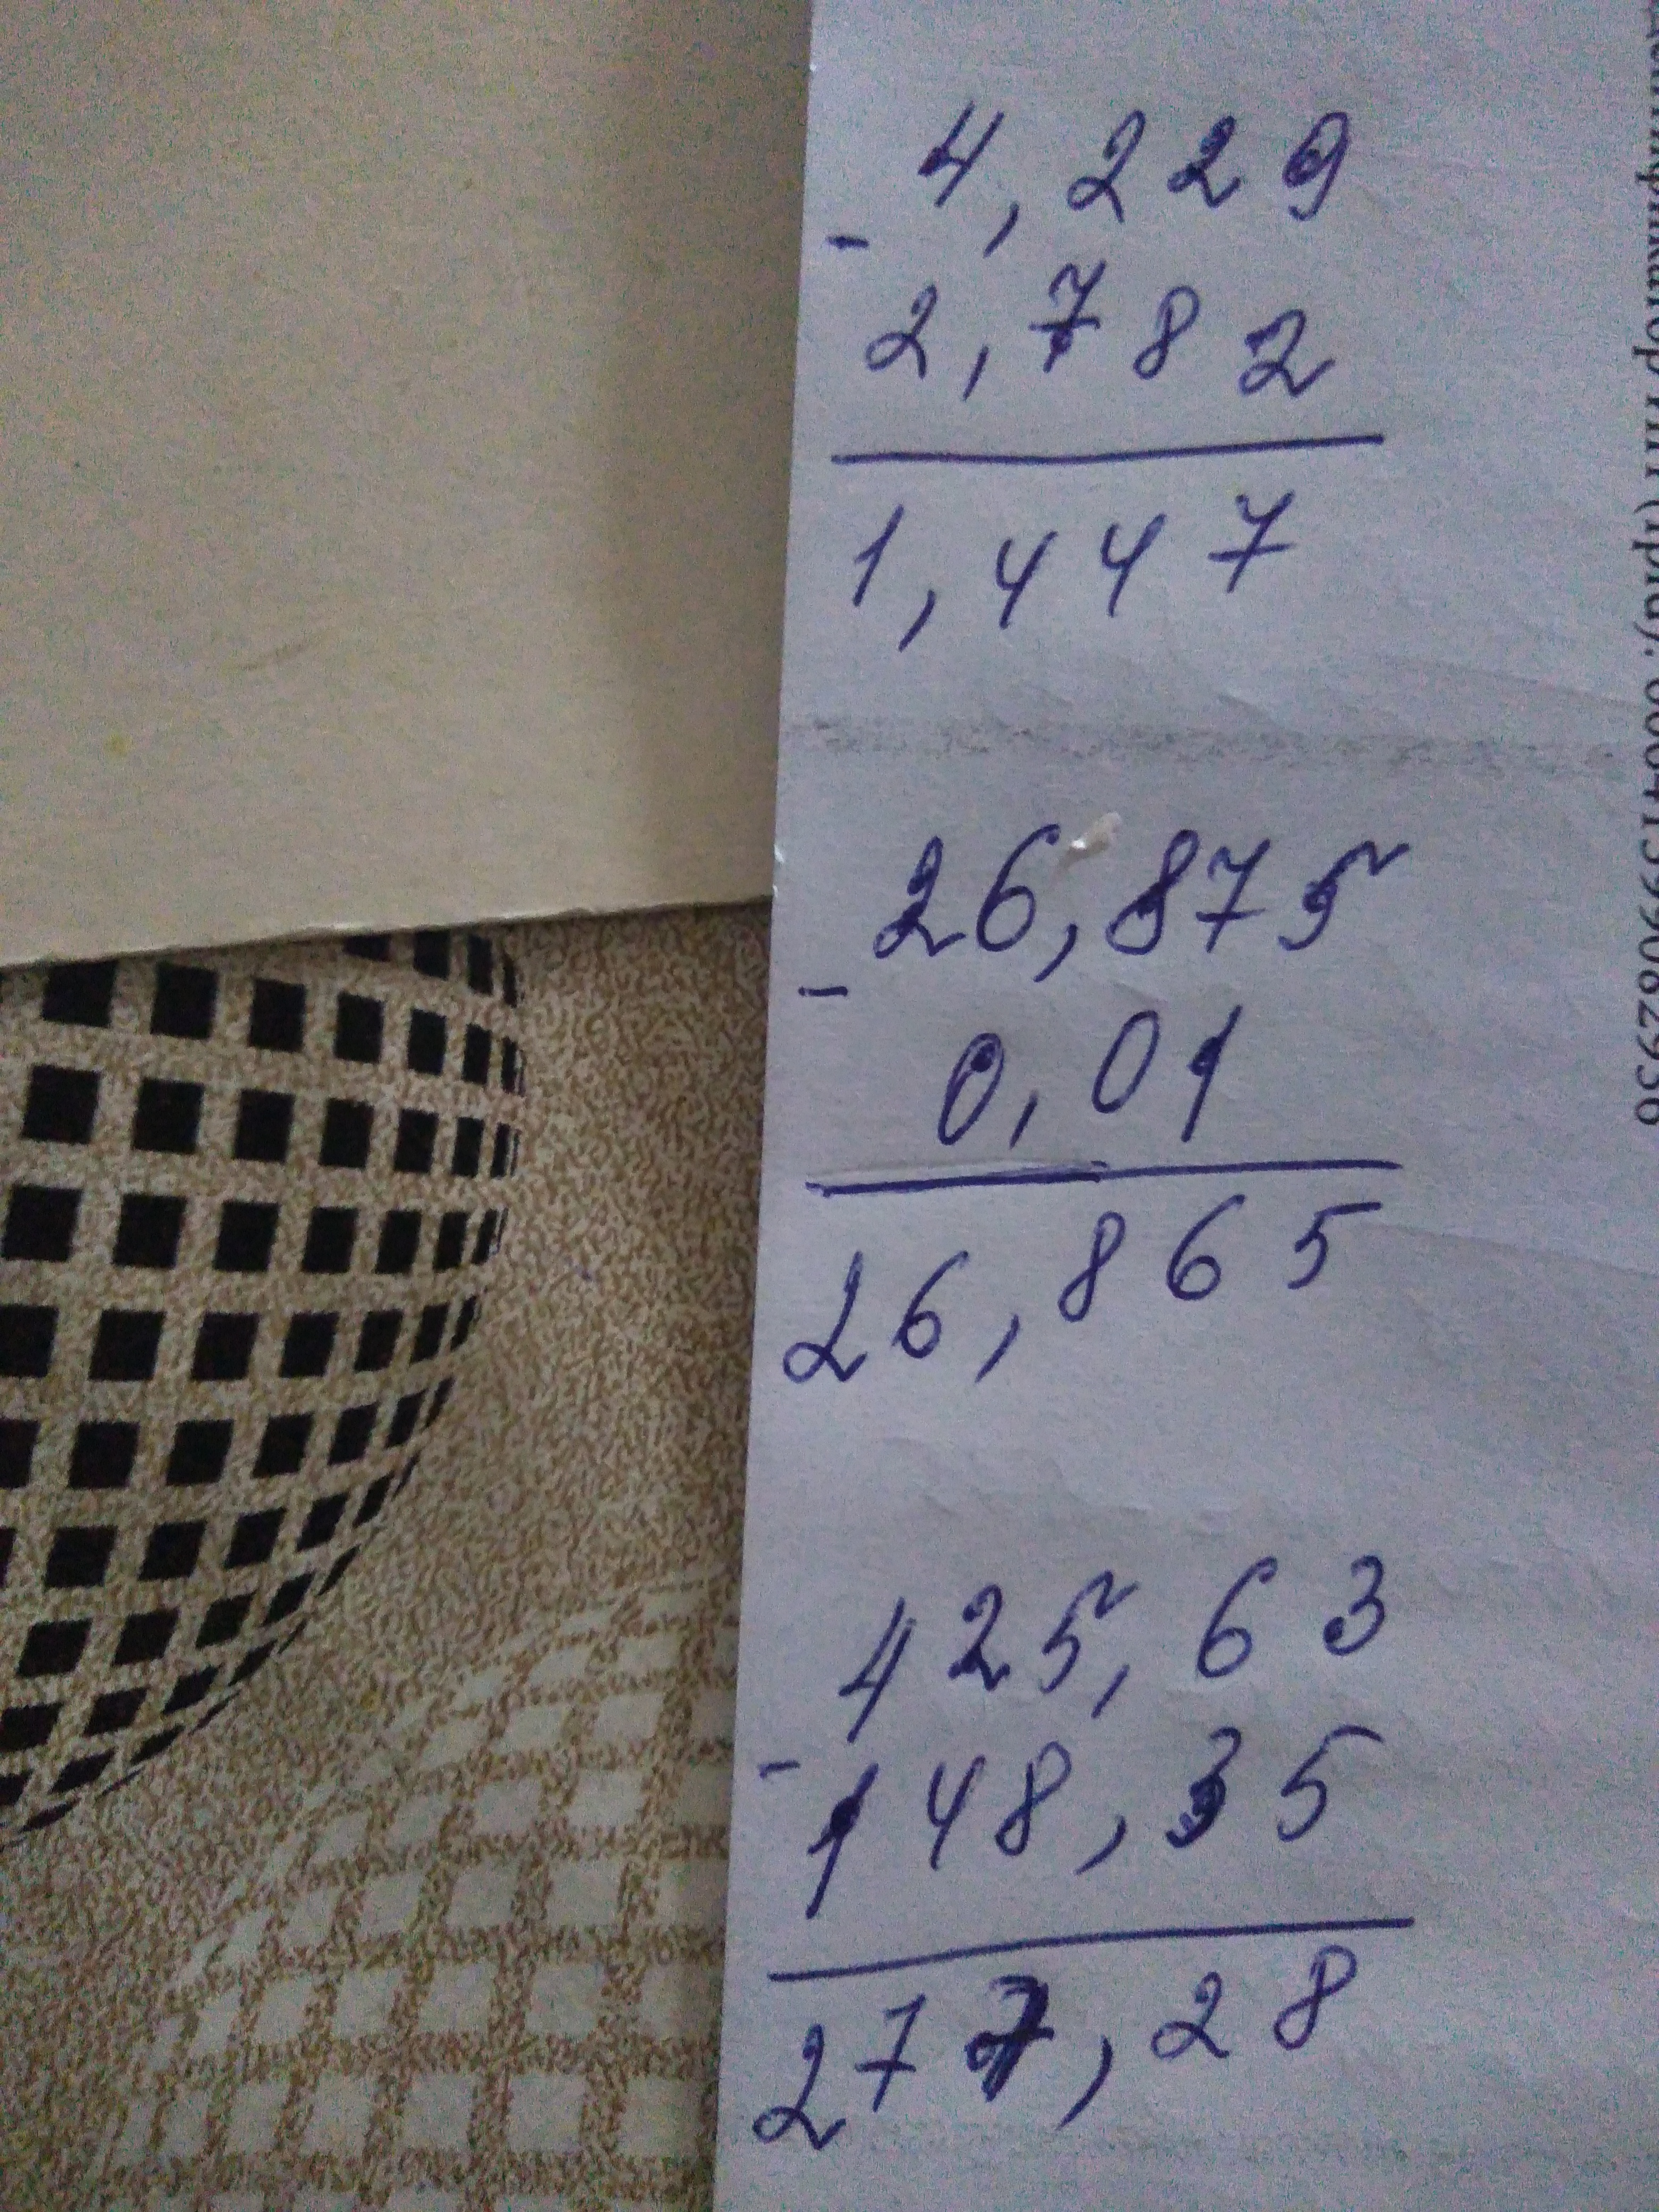 4,229
-
2,782
1,447
26,875
-
0,01
26,865
425,63
-
148,35
277,28